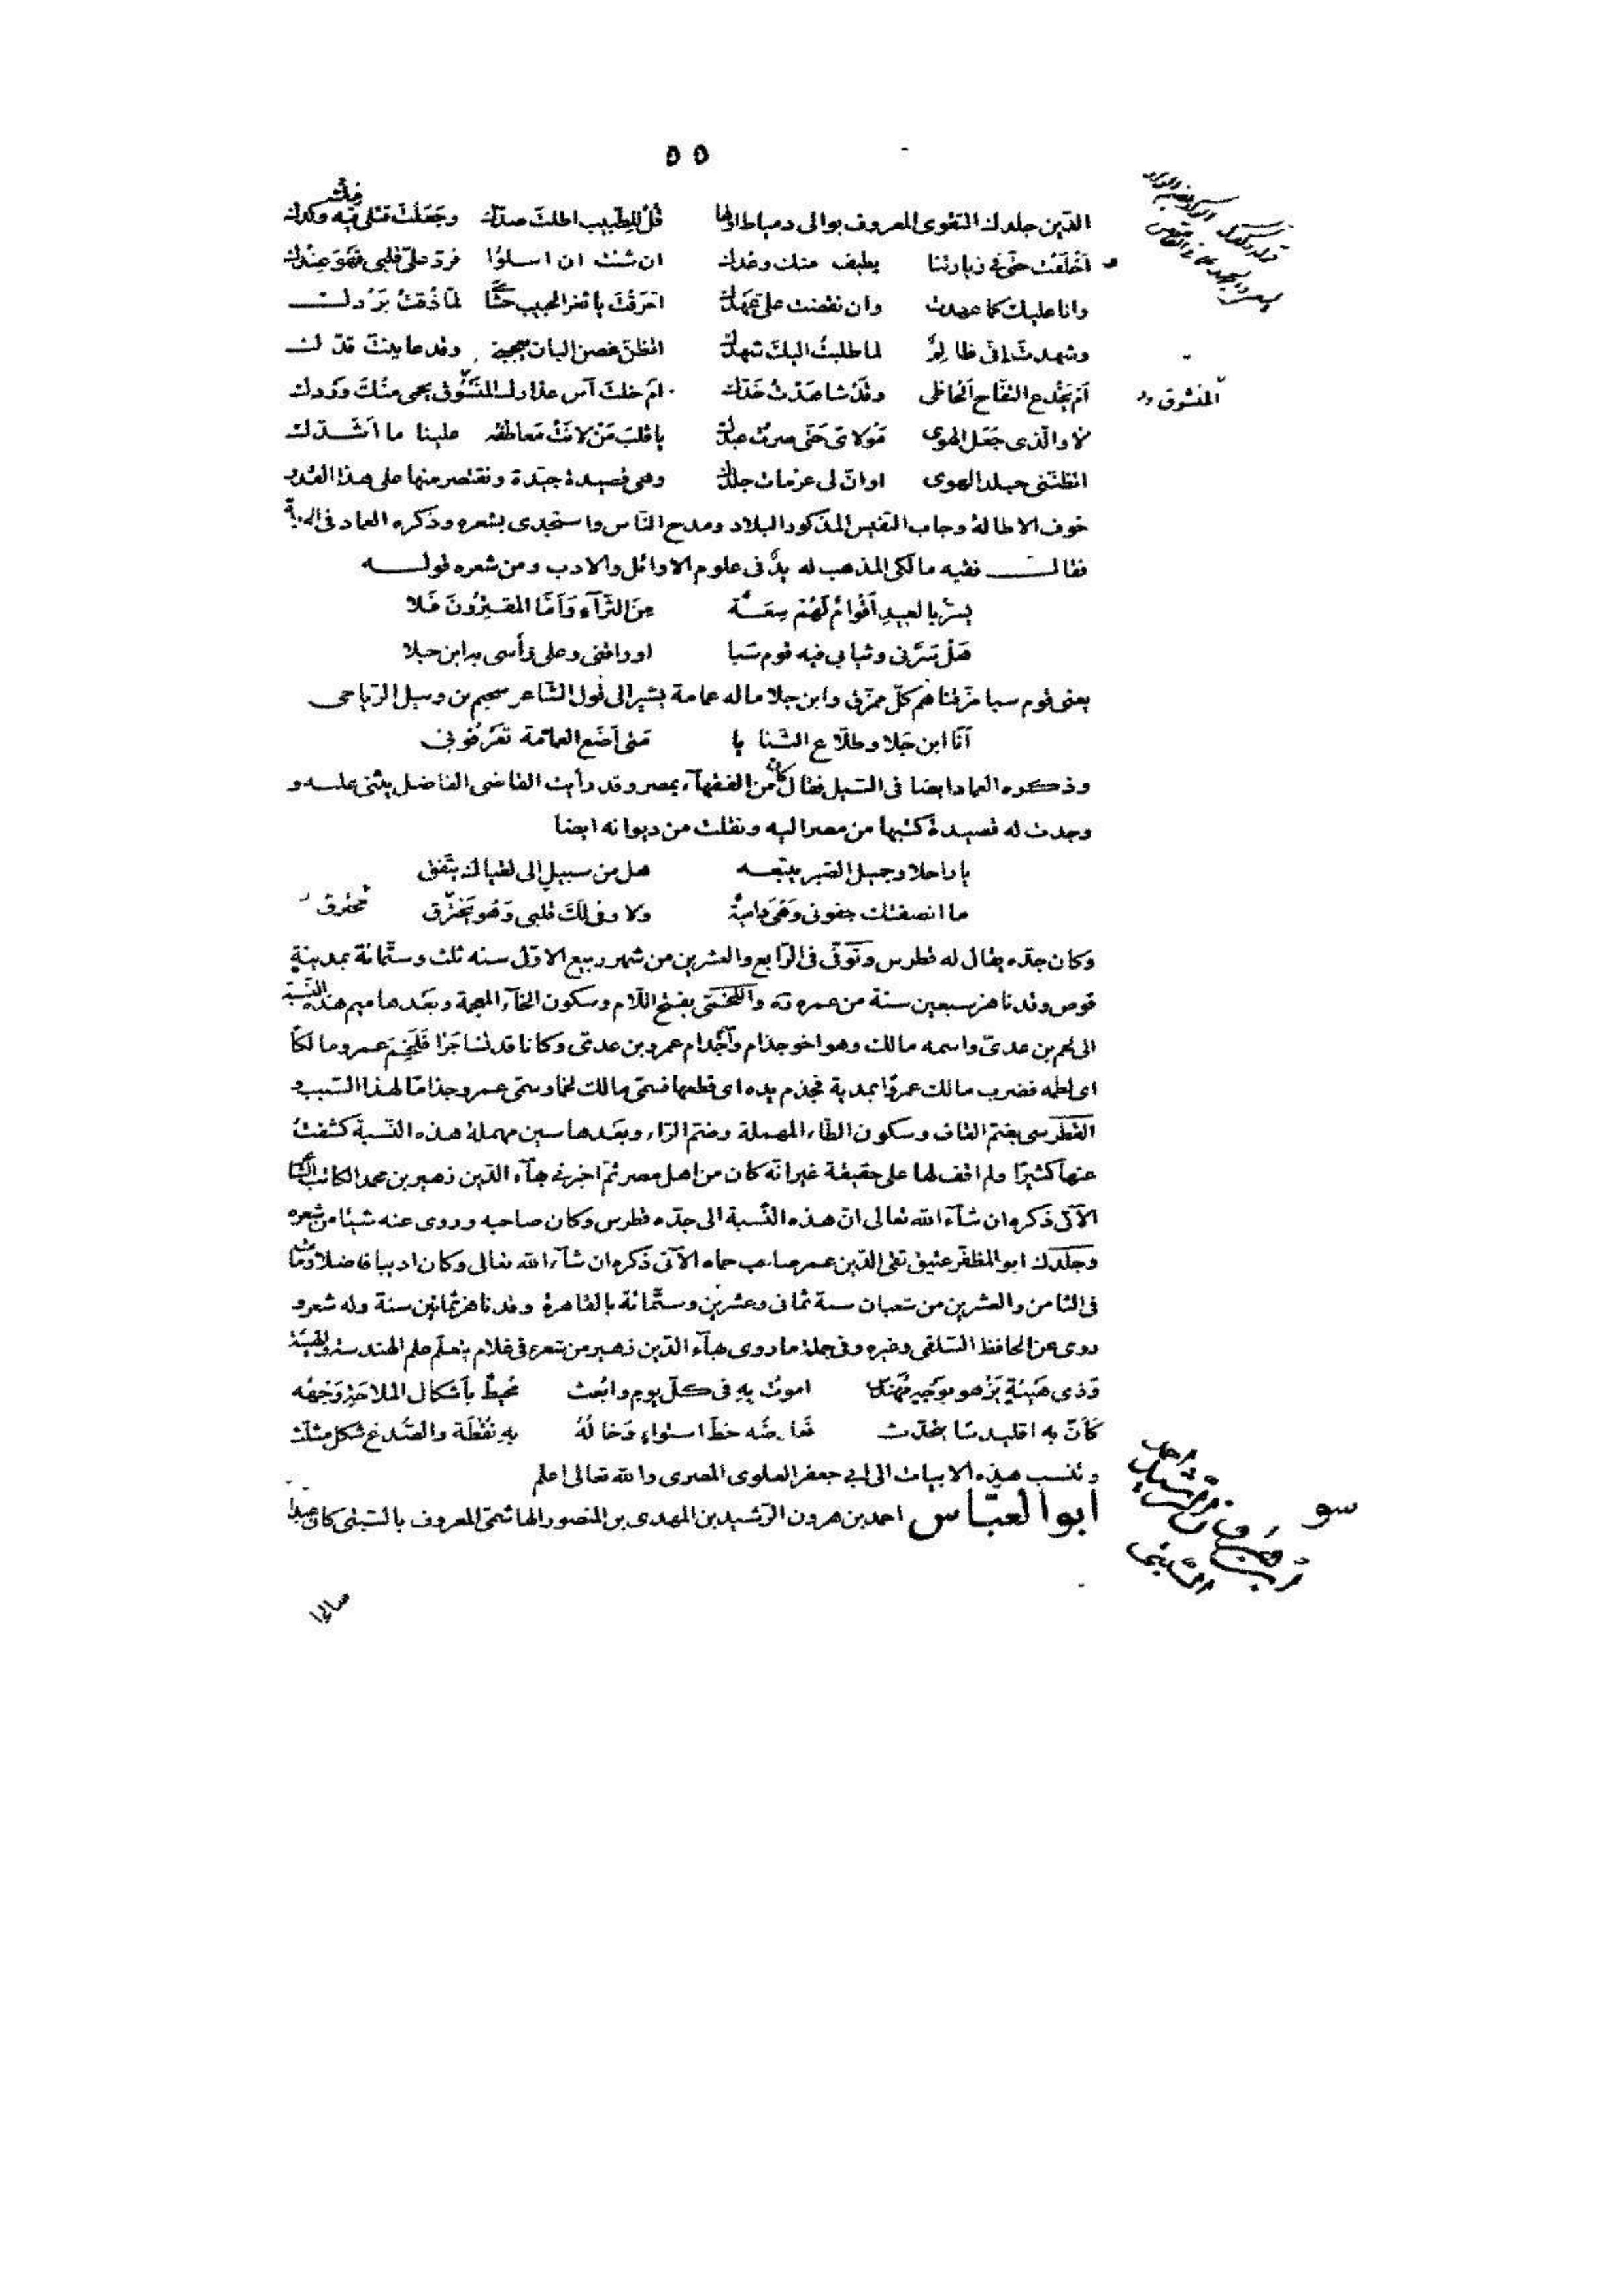 ٥٥
الدّين جلدك التقوى المعروف بوالى دمياط اولها قُلْ لِلطّبِيب اطلتَ صدّك وجَعَلْتَ قتلى فيه وكدك
اَخْلَفْتَ حتّى فى زيارتنا بطيف منك وعدك ان شئت ان اسلوا فردّ علىّ قلبى فَهُوَ عِنْدك
وانا عليك كما عهدت وان نقضت علىّ عَهْدك احَرَقْتَ يا ثغر الحبيب حشًا لمّا ذُقتُ بَرْدك
وشهدت انى ظالِمٌ لما طلبتُ اليكَ شهدك اتظنّ غصن البان يعجبنى وقد عاينتُ قدّك
اَمْ يَخْدع التفّاح اَلحاظى وقَدْ شاهَدْتُ خَدّك ام خلتَ آس عذارك المنشوق يحمى منْكَ وَرْدك
المنشوق
لا والّذى جَعَل الهوى مَوْلاىَ حَتّى صرتُ عبدك يا قلبَ مَنْ لانَتْ مَعَاطفه علينا ما اَشَدّك
اتظنّنى جلد الهوى اوانّ لى عزمات جلدك وهى قصيدة جيّدة ونقتصر منها على هذا القدر
خوف الاطالة وجاب النفيس المذكور البلاد ومدح النّاس واستجدى بشعره وذكره العماد فى الخريدة
فقال فقيه مالكى المذهب له يدٌ فى علوم الاوائل والادب ومن شعره قوله
يسرّ بالعيد اَقْوامٌ لَهُمْ سِعَة مِنَ الثّرآءِ وَاَمّا المقتِرُونَ فلا
هَلْ سَرّنى وثيابى فيه قوم سَبا اوراقنى وعلى رأسى به ابن جلا
يعنى قوم سبا مزقناهم كلّ ممزّق وابن جلا ماله عمامة يشير الى قول الشّاعر سحيم بن وثيل الرّياحى
اَنَا ابن جَلا وطلّاع الثنايا مَتى اَضَع العمامة تَعْرِفُونى
وذكره العماد ايضا فى السّيل فقال كان من الفقهآء بمصر وقد رأيت القاضى الفاضل يثنى عليه و
وجدت له قصيدة كتبها من مصر اليه ونقلت من ديوانه ايضا
يا راحلا وجميل الصّبر يتبعه هل من سبيل الى لقياك يتّفق
ما انصفتك جفونى وَهْىَ دامية ولا وفى لكَ قلبى وَهُو يَحْتَرق
محترق
وكان جدّه يقال له قطرس وتُوَفّى فى الرّابع والعشرين من شهر ربيع الاوّل سنه ثلث وستّمائة بمدينة
قوص وقد ناهز سبعين سنة من عمره واللَخْمّى بفتح اللّام وسكون الخآء المعجمة وبعدها ميم هذه النّسبة
الى لخم بن عدىّ واسمه مالك وهو اخو جذام وجُذام عمرو بن عدىّ وكانا قد تشاجَرا فَلَخَمَ عمرو مالكا
اى لطمه فضرب مالك عمرًوا بمدية فجذم يده اى قطعها فسمّى مالك لخما وسمّى عمرو جذاما لهذا السّبب و
القُطْرسى بضمّ القاف وسكون الطّاء المهملة وضمّ الرّاء وبعدها سين مهملة هذه النّسبة كشفتُ
عنها كثيرًا ولم اقف لها على حقيقة غير انّه كان من اهل مصر ثمّ اخبرنى بهآء الدّين زهير بن محمد الكاتب الشاعر
الآتى ذكره ان شآء الله تعالى انّ هذه النّسبة الى جدّه قطرس وكان صاحبه وروى عنه شيئا من شعره
وجلدك ابو المظفّر عتيق تقى الدّين عمر صاحب حماه الآتى ذكره ان شآء الله تعالى وكان اديبا فاضلا ومات
فى الثامن والعشرين من شعبان سنة ثمانى وعشرين وستّمائة بالقاهرة وقد ناهز ثمانين سنة وله شعر و
روى عن الحافظ السّلفى وغيره وفى جملة ما روى بهآء الدّين زهير من شعره فى غلام يتعلّم علم الهندسة والهيئة
وَذى هَيْئةٍ يَزْهو بوَجْهٍ مُهَنْدَس اموتُ بِهِ فى كلّ يوم وابْعث محيطٌ بأشكال الملاحةِ وَجهُه
كَأنّ به اقليدسًا يتحدّث فعارضُه خطّ استواءٍ وَخالُهُ بِهِ نُقْطَة والصُّدغ شكل مثلّث
وتنسب هذه الابيات الى ابى جعفر العلوى المصرى والله تعالى اعلم
ابو العبّاس احمد بن هرون الرّشيد بن المهدى بن المنصور الهاشمىّ المعروف بالسّبتى كان عبدا
صالحا